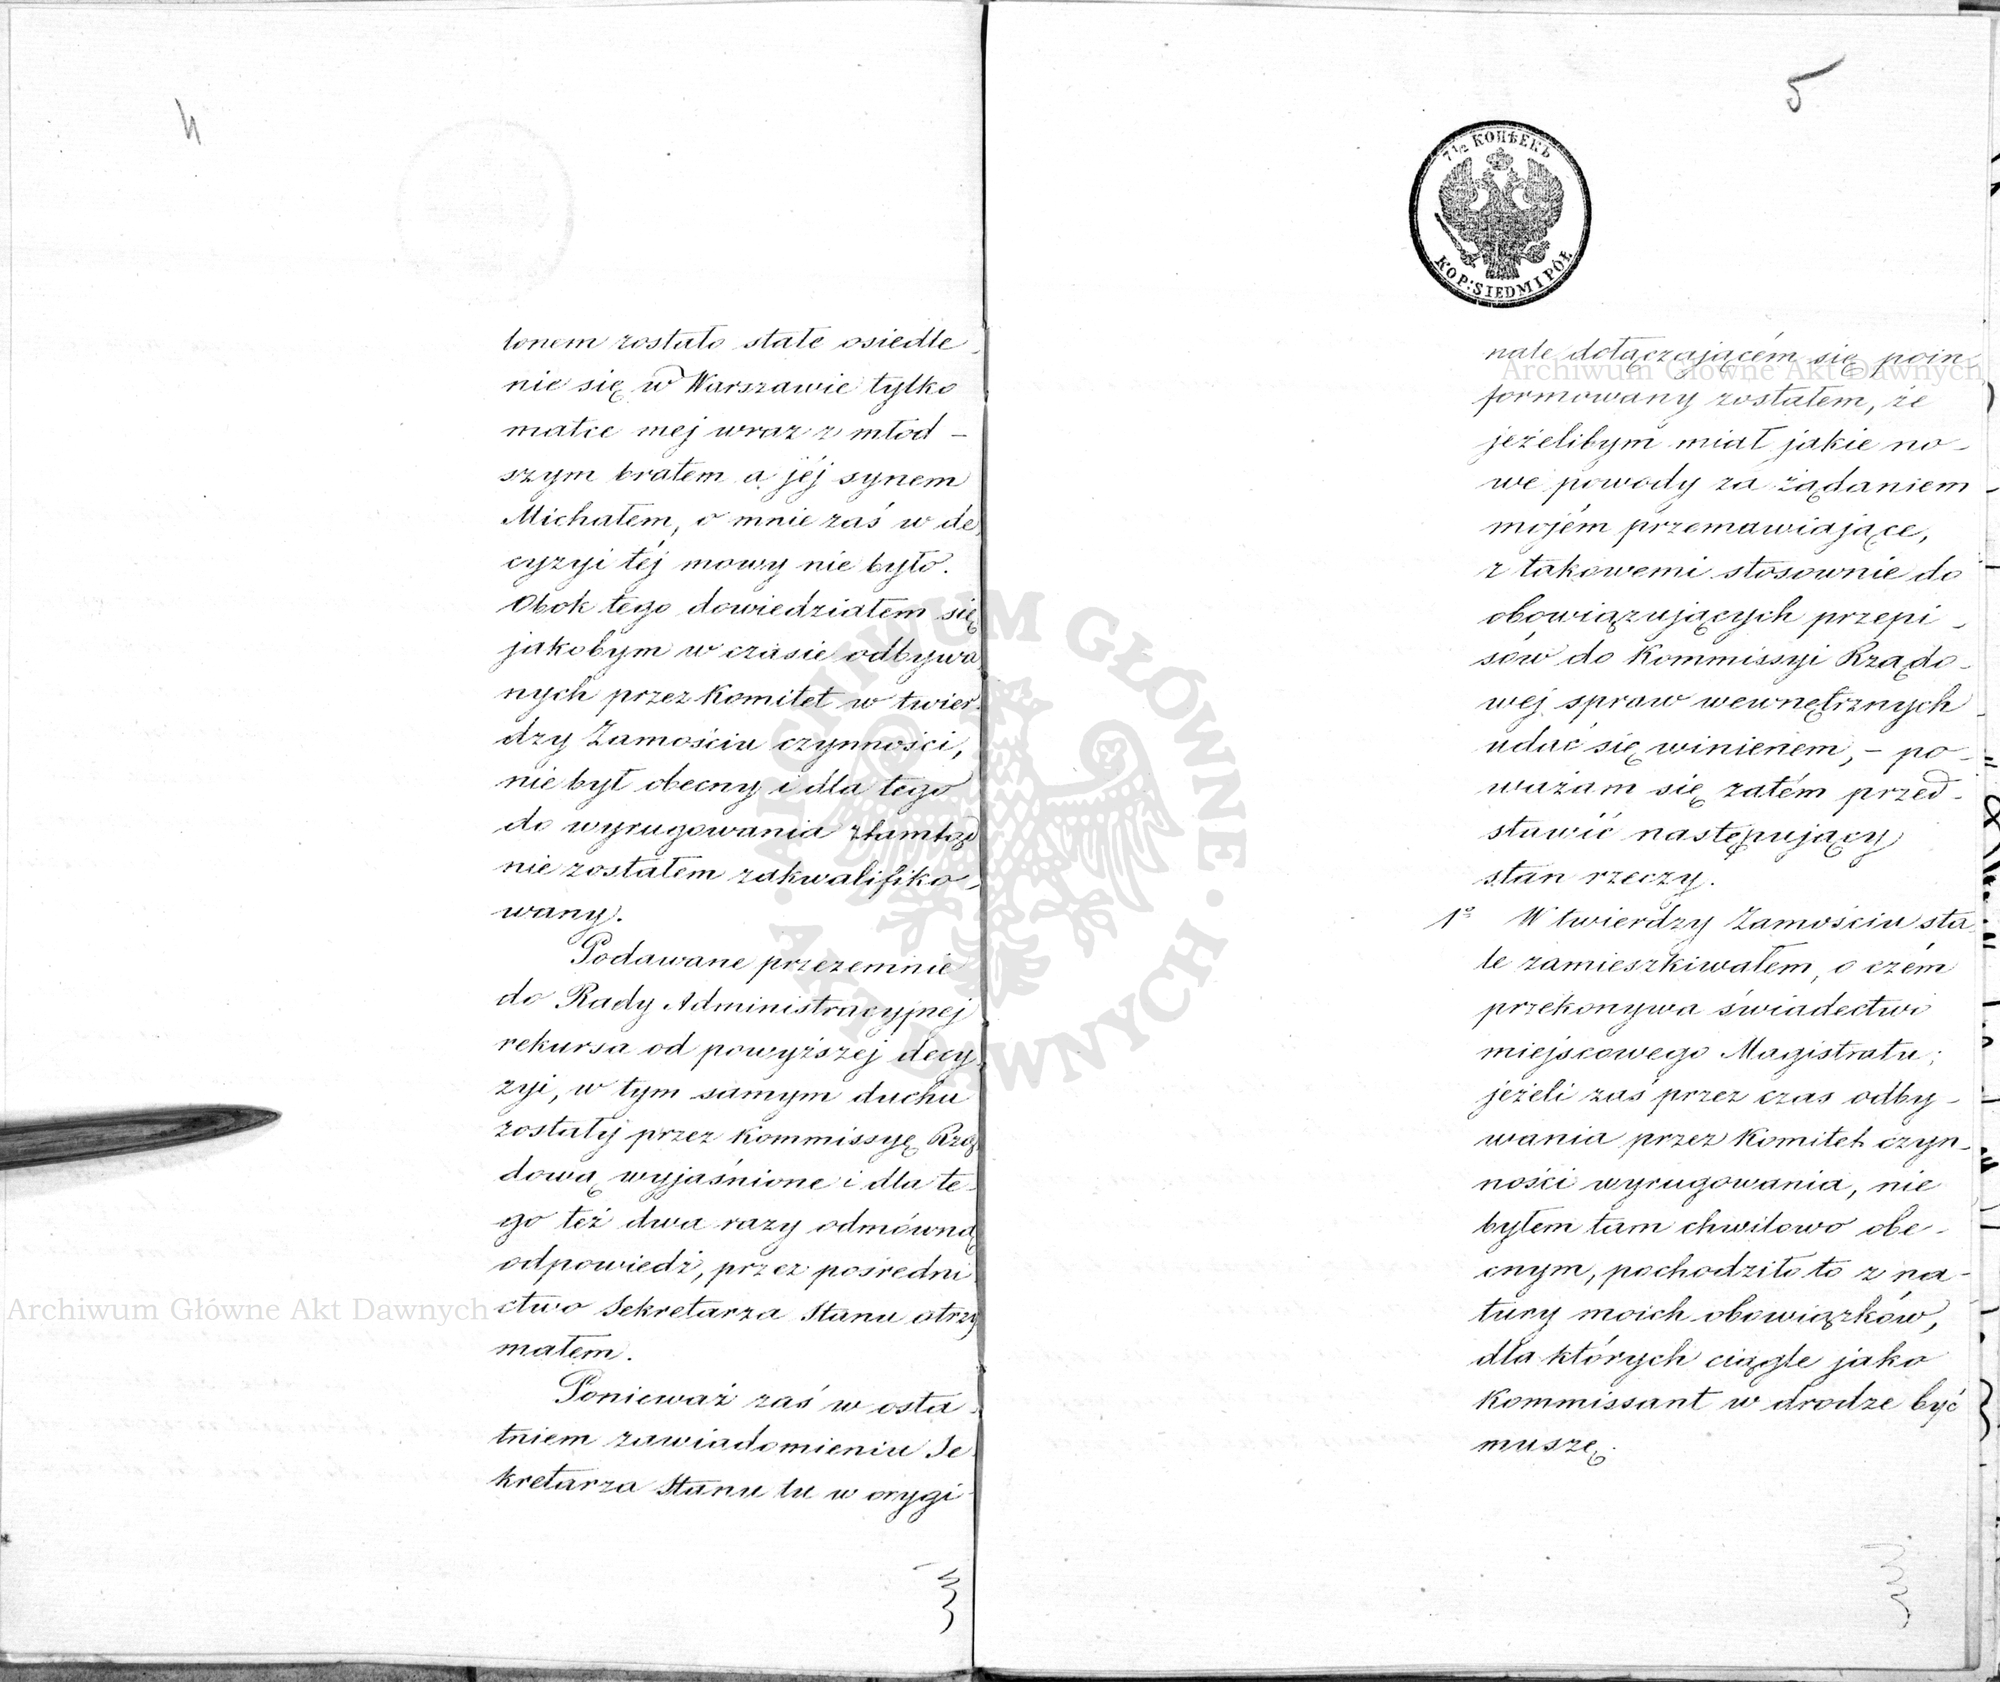 4
lonem zostało stałe osiedle-
nie się w Warszawie tylko
matce mej wraz z młod-
szym bratem a jéj synem
Michałem, o mnie zaś w de
cyzyi téj mowy nie było.
Obok tego dowiedziałem się
jakobym w czasie odbywa
nych przez Komitet w twier
dzy Zamościu czynności,
nie był obecny i dla tego
do wyrugowania ztamtąd
nie zostałem zakwalifiko-
wany.
Podawane przezemnie
do Rady Administracyjnej
rekursa od powyższej decy
zyi, w tym samym duchu
zostały przez Kommissyę Rzą
dową wyjaśnione i dla te-
go też dwa razy odmówną
odpowiedź, przez pośredni
ctwo Sekretarza Stanu otrzy
małem.
Ponieważ zaś w osta
tniem zawiadomieniu Se
kretarza Stanu tu w orygi
5
7 1/2 КОПѢЕКЪ
KOP: SIEDM I PÓŁ
nale dołączającém się poin-
formowany zostałem, że
jeżelibym miał jakie no-
we powody za żądaniem
mojém przemawiające,
z takowemi stosownie do
obowiązujących przepi-
sów do Kommissyi Rządo-
wej spraw wewnętrznych
udać się winienem, - po-
ważam się zatém przed-
stawić następujący
stan rzeczy.
1º W twierdzy Zamościu sta
le zamieszkiwałem, o czém
przekonywa świadectwo
miejscowego Magistratu;
jeżeli zaś przez czas odby-
wania przez Komitet czyn-
ności wyrugowania, nie
byłem tam chwilowo obe-
cnym, pochodziło to z na-
tury moich obowiązków,
dla których ciągle jako
Kommissant w drodze być
muszę.
Archiwum Główne Akt Dawnych
Archiwum Główne Akt Dawnych
ARCHIWUM GŁÓWNE AKT DAWNYCH